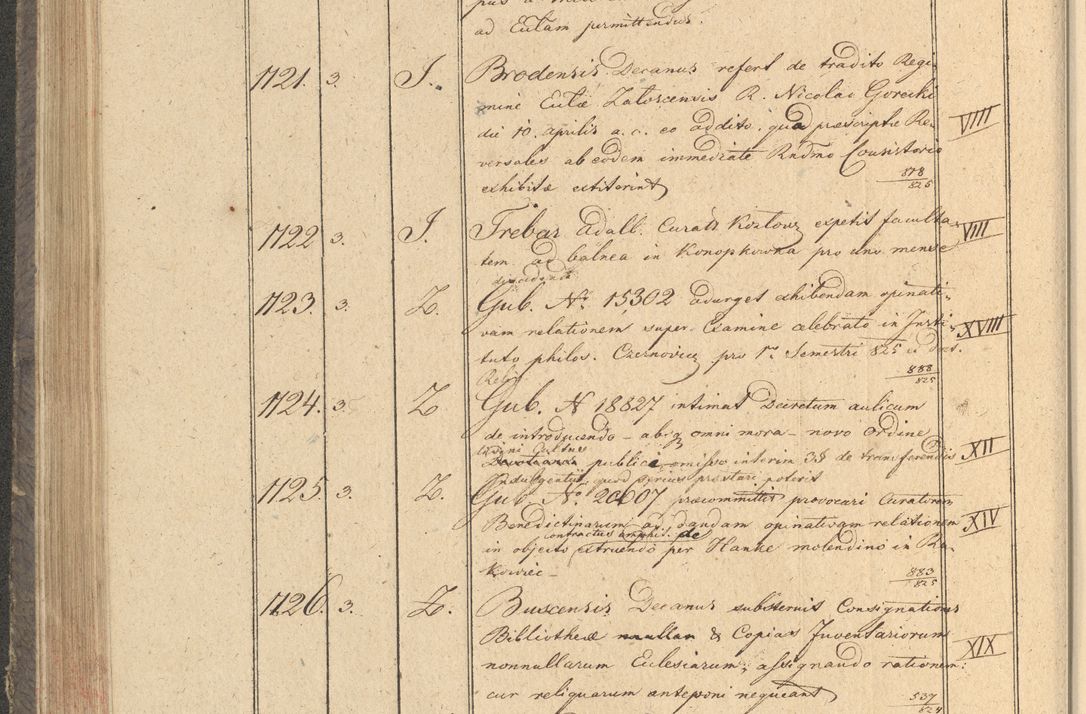 ad Eulam permittendus.
1721. 3. J. Brodensis Decanus refert de tradito Regi-
mine Eulæ Zaloscensis R. Nicolao Gorecki
die 10. aprilis a. c. eo addito, quod præscriptæ Re- VIIII
versales ab eodem immediate Rndmo Consistorio
exhibitæ extiterint 878/825
1722 3. J. Trebar Adalb. Curatz Kozlowz expetit faculta- VIII
tem ad balnea in Konopkowna pro uno mense
discedendi
1723. 3. Z. Gub. Nr. 15302 adurget exhibendam opinati-
vam relationem super Examine celebrato in Insti- XVIII
tuto philos. Czernovicz pro 1mo Semestri 825 e Doct.
Relig. 888/825
1724. 3. Z Gub. N 18827 intimat Decretum aulicum
de introducendo - absq omni mora - novo Ordine
divini Cultus
publici omisso interim 38 de transferendis XII
Indulgentiis, quod serius præstari poterit
1725. 3. Z. Gub. No. 20607 præcommittit provocari Curatorem
Benedictinarum ad dandam opinativam relationem XIV
contractus emphit. de
in objecto extruendo per Hanke molendino in Ra-
kowiec - 883/825
1726. 3. Z. Buscensis Decanus substernit Consignationes
Bibliothecæ & Copias Inventariorum
nonnullarum Ecclesiarum, assignando rationem: XIX
cur reliquarum anteponi nequeant 537/824